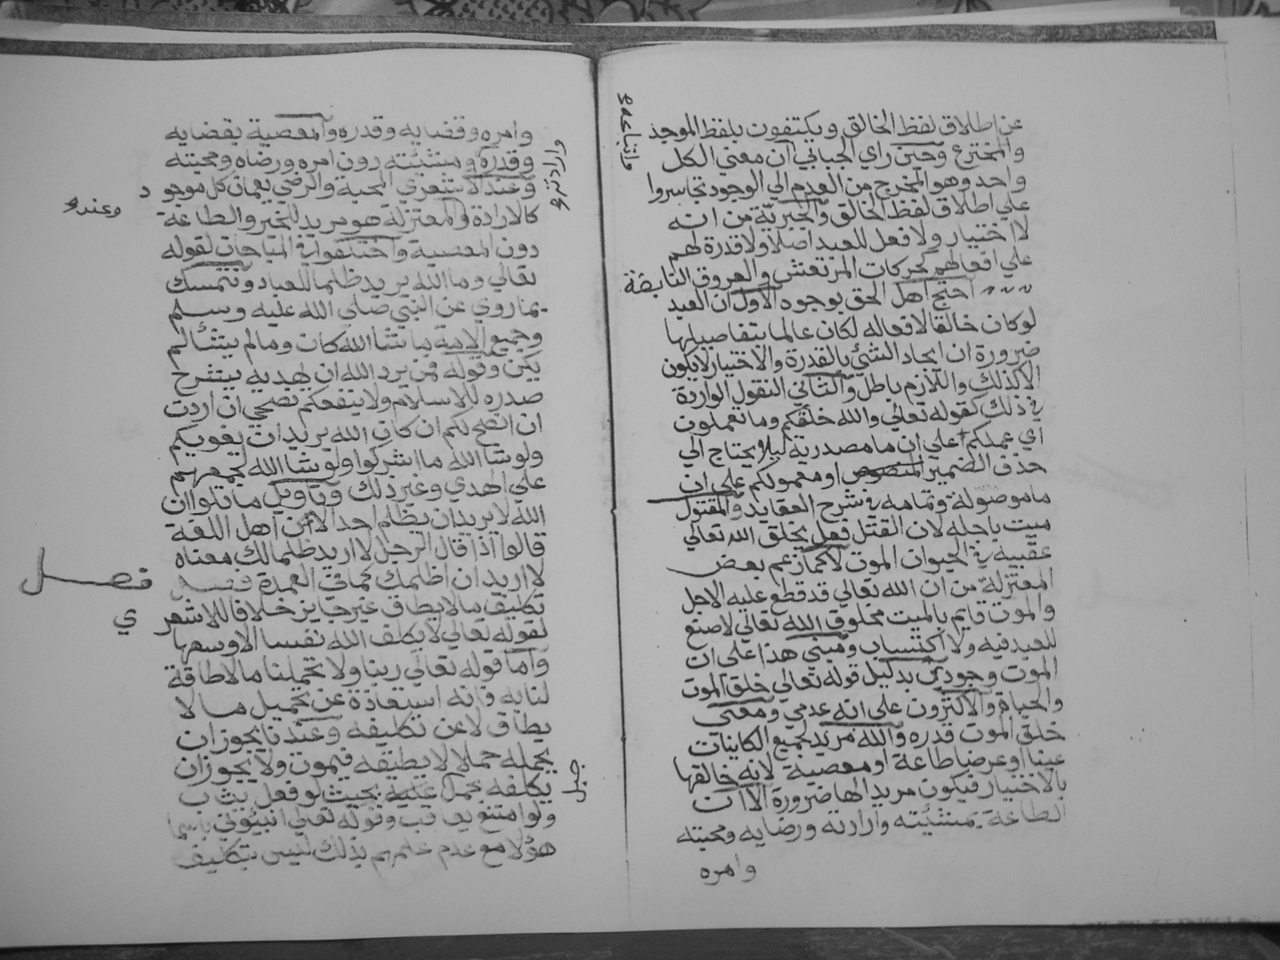 عن اطلاق لفظ الخالق ويكتفون بلفظ الموجد
والمخترع وحين راي الجبائي ان معني الكل
واتباعه
واحد وهو المخرج من العدم الي الوجود تجاسروا
علي اطلاق لفظ الخالق والجبرية من انه
لا اختيار ولا فعل للعبد اصلا ولا قدرة لهم
علي افعالهم كحركات المرتعش والعروق النابضة
احتج اهل الحق بوجوه الاول ان العبد
لو كان خالقا لافعاله لكان عالما بتفاصيلها
ضرورة ان ايجاد الشئ بالقدرة والاختيار لا يكون
الا كذلك واللازم باطل والثاني النقول الواردة
في ذلك كقوله تعالي والله خلقكم وما تعملون
اي عملكم علي ان ما مصدرية ليلا يحتاج الي
حذف الضمير او معمولكم علي ان
ما موصولة وتمامه في شرح العقايد والمقتول
ميت باجله لان القتل فعل يخلق الله تعالي
عقيبه في الحيوان الموت لا كما زعم بعض
المعتزلة من ان الله تعالي قد قطع عليه الاجل
والموت قايم بالميت مخلوق الله تعالي لا صنع
للعبد فيه ولا اكتساب ومبني هذا علي ان
الموت وجودي بدليل قوله تعالي خلق الموت
والحياة والاكثرون علي انه عدمي ومعني
خلق الموت قدره والله مريد لجميع الكاينات
عينا او عرضا طاعة او معصية لانه خالقها
بالاختيار فيكون مريدا لها ضرورة الا ان
الطاعة بمشئيته وارادته ورضايه ومحبته
وامره
وامره وقضايه وقدره والمعصية بقضايه
وقدره ومشئيته دون امره ورضاه ومحبته
وارادته
وعند الاشعري المحبة والرضي يعمان كل موجود
وعند
كالارادة والمعتزلة هو مريد للخير والطاعة
دون المعصية واختلفوا في المباحات لقوله
تعالي وما الله يريد ظلما للعباد ونتمسك
بما روي عن النبي صلي الله عليه وسلم
وجميع الامة ما شا الله كان وما لم يشا لم
يكن وقوله فمن يرد الله ان يهديه يشرح
صدره للاسلام ولا ينفعكم نصحي ان اردت
ان انصح لكم ان كان الله يريد ان يغويكم
ولو شا الله ما اشركوا ولو شا الله لجمعهم
علي الهدي وغير ذلك وتاويل ما تلوا ان
الله لا يريد ان يظلم احدا لان اهل اللغة
قالوا اذا قال الرجل لا اريد ظلما لك معناه
لا اريد ان اظلمك كما في العمدة
فصل
تكليف ما لا يطاق غير جايز خلافا للاشعري
لقوله تعالي لا يكلف الله نفسا الا وسعها
واما قوله تعالي ربنا ولا تحملنا ما لا طاقة
لنا به فانه استعاذة عن تحميل ما لا
يطاق لا عن تكليفه وعندنا يجوز ان
يحمله حملا لا يطيقه فيموت ولا يجوز ان
جبل
يكلفه بحمل بحيث لو فعل يثاب
ولو امتنع يعاقب وقوله تعالي انبيوني باسما
هؤلا مع عدم علمهم بذلك ليس بتكليف